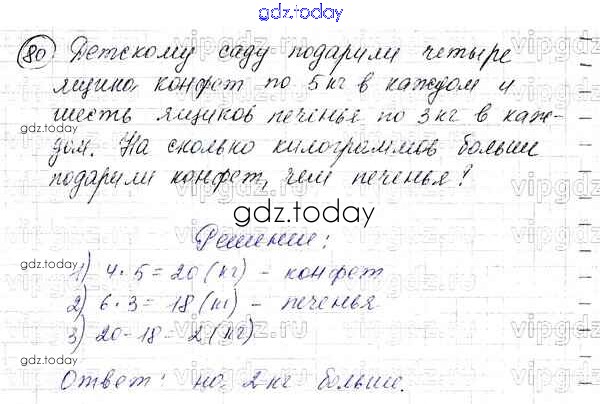 gdz.today
80 Детскому саду подарили четыре
ящика конфет по 5 кг в каждом и
шесть ящиков печенья по 3 кг в каж-
gdz.today
дом. На сколько килограммов больше
подарили конфет, чем печенья?
gdz.today
Решение:
1) 4 · 5 = 20 (кг) - конфет
2) 6 · 3 = 18 (кг) - печенья
3) 20 - 18 = 2 (кг)
gdz.today
Ответ: на 2 кг больше.